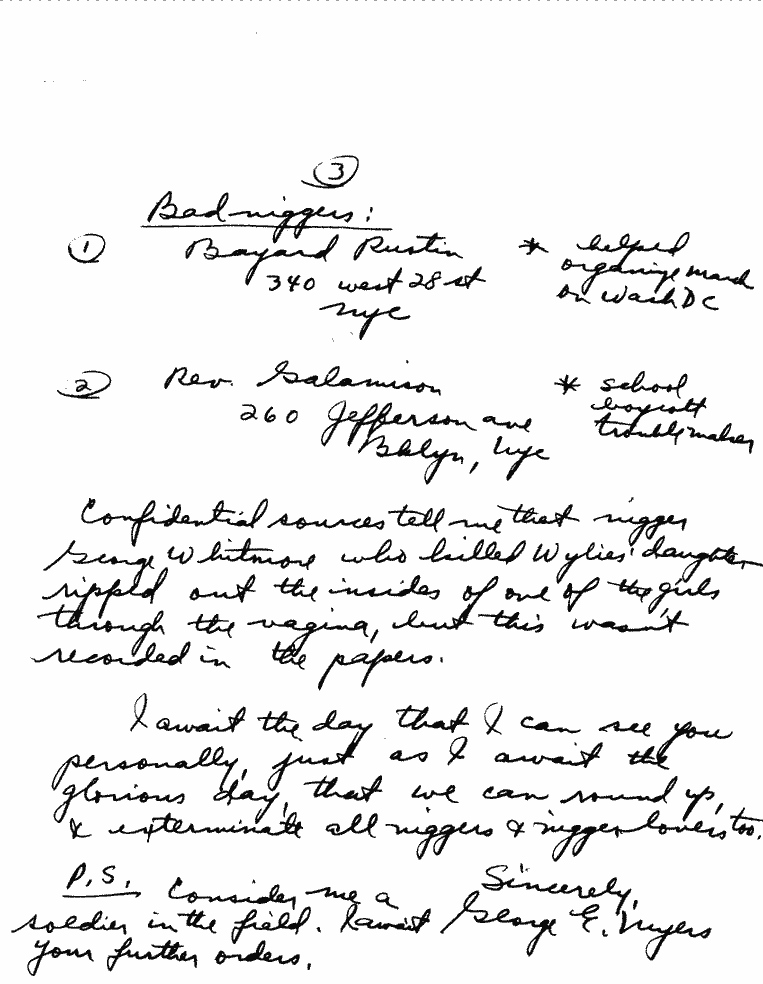 3
Bad niggers:
1 Bayard Rustin * helped
340 west 28 st organize march
nyc on Wash DC
2 Rev. Galamison * school
260 Jefferson ave boycott
Bklyn, nyc troublemaker
Confidential sources tell me that nigger
George Whitmore who killed Wylies' daughter
ripped out the insides of one of the girls
through the vagina, but this wasn't
recorded in the papers.
I await the day that I can see you
personally, just as I await the
glorious day, that we can round up,
& exterminate all niggers & nigger lovers too.
P.S. Consider me a Sincerely,
soldier in the field. I await George E. Myers
your further orders.